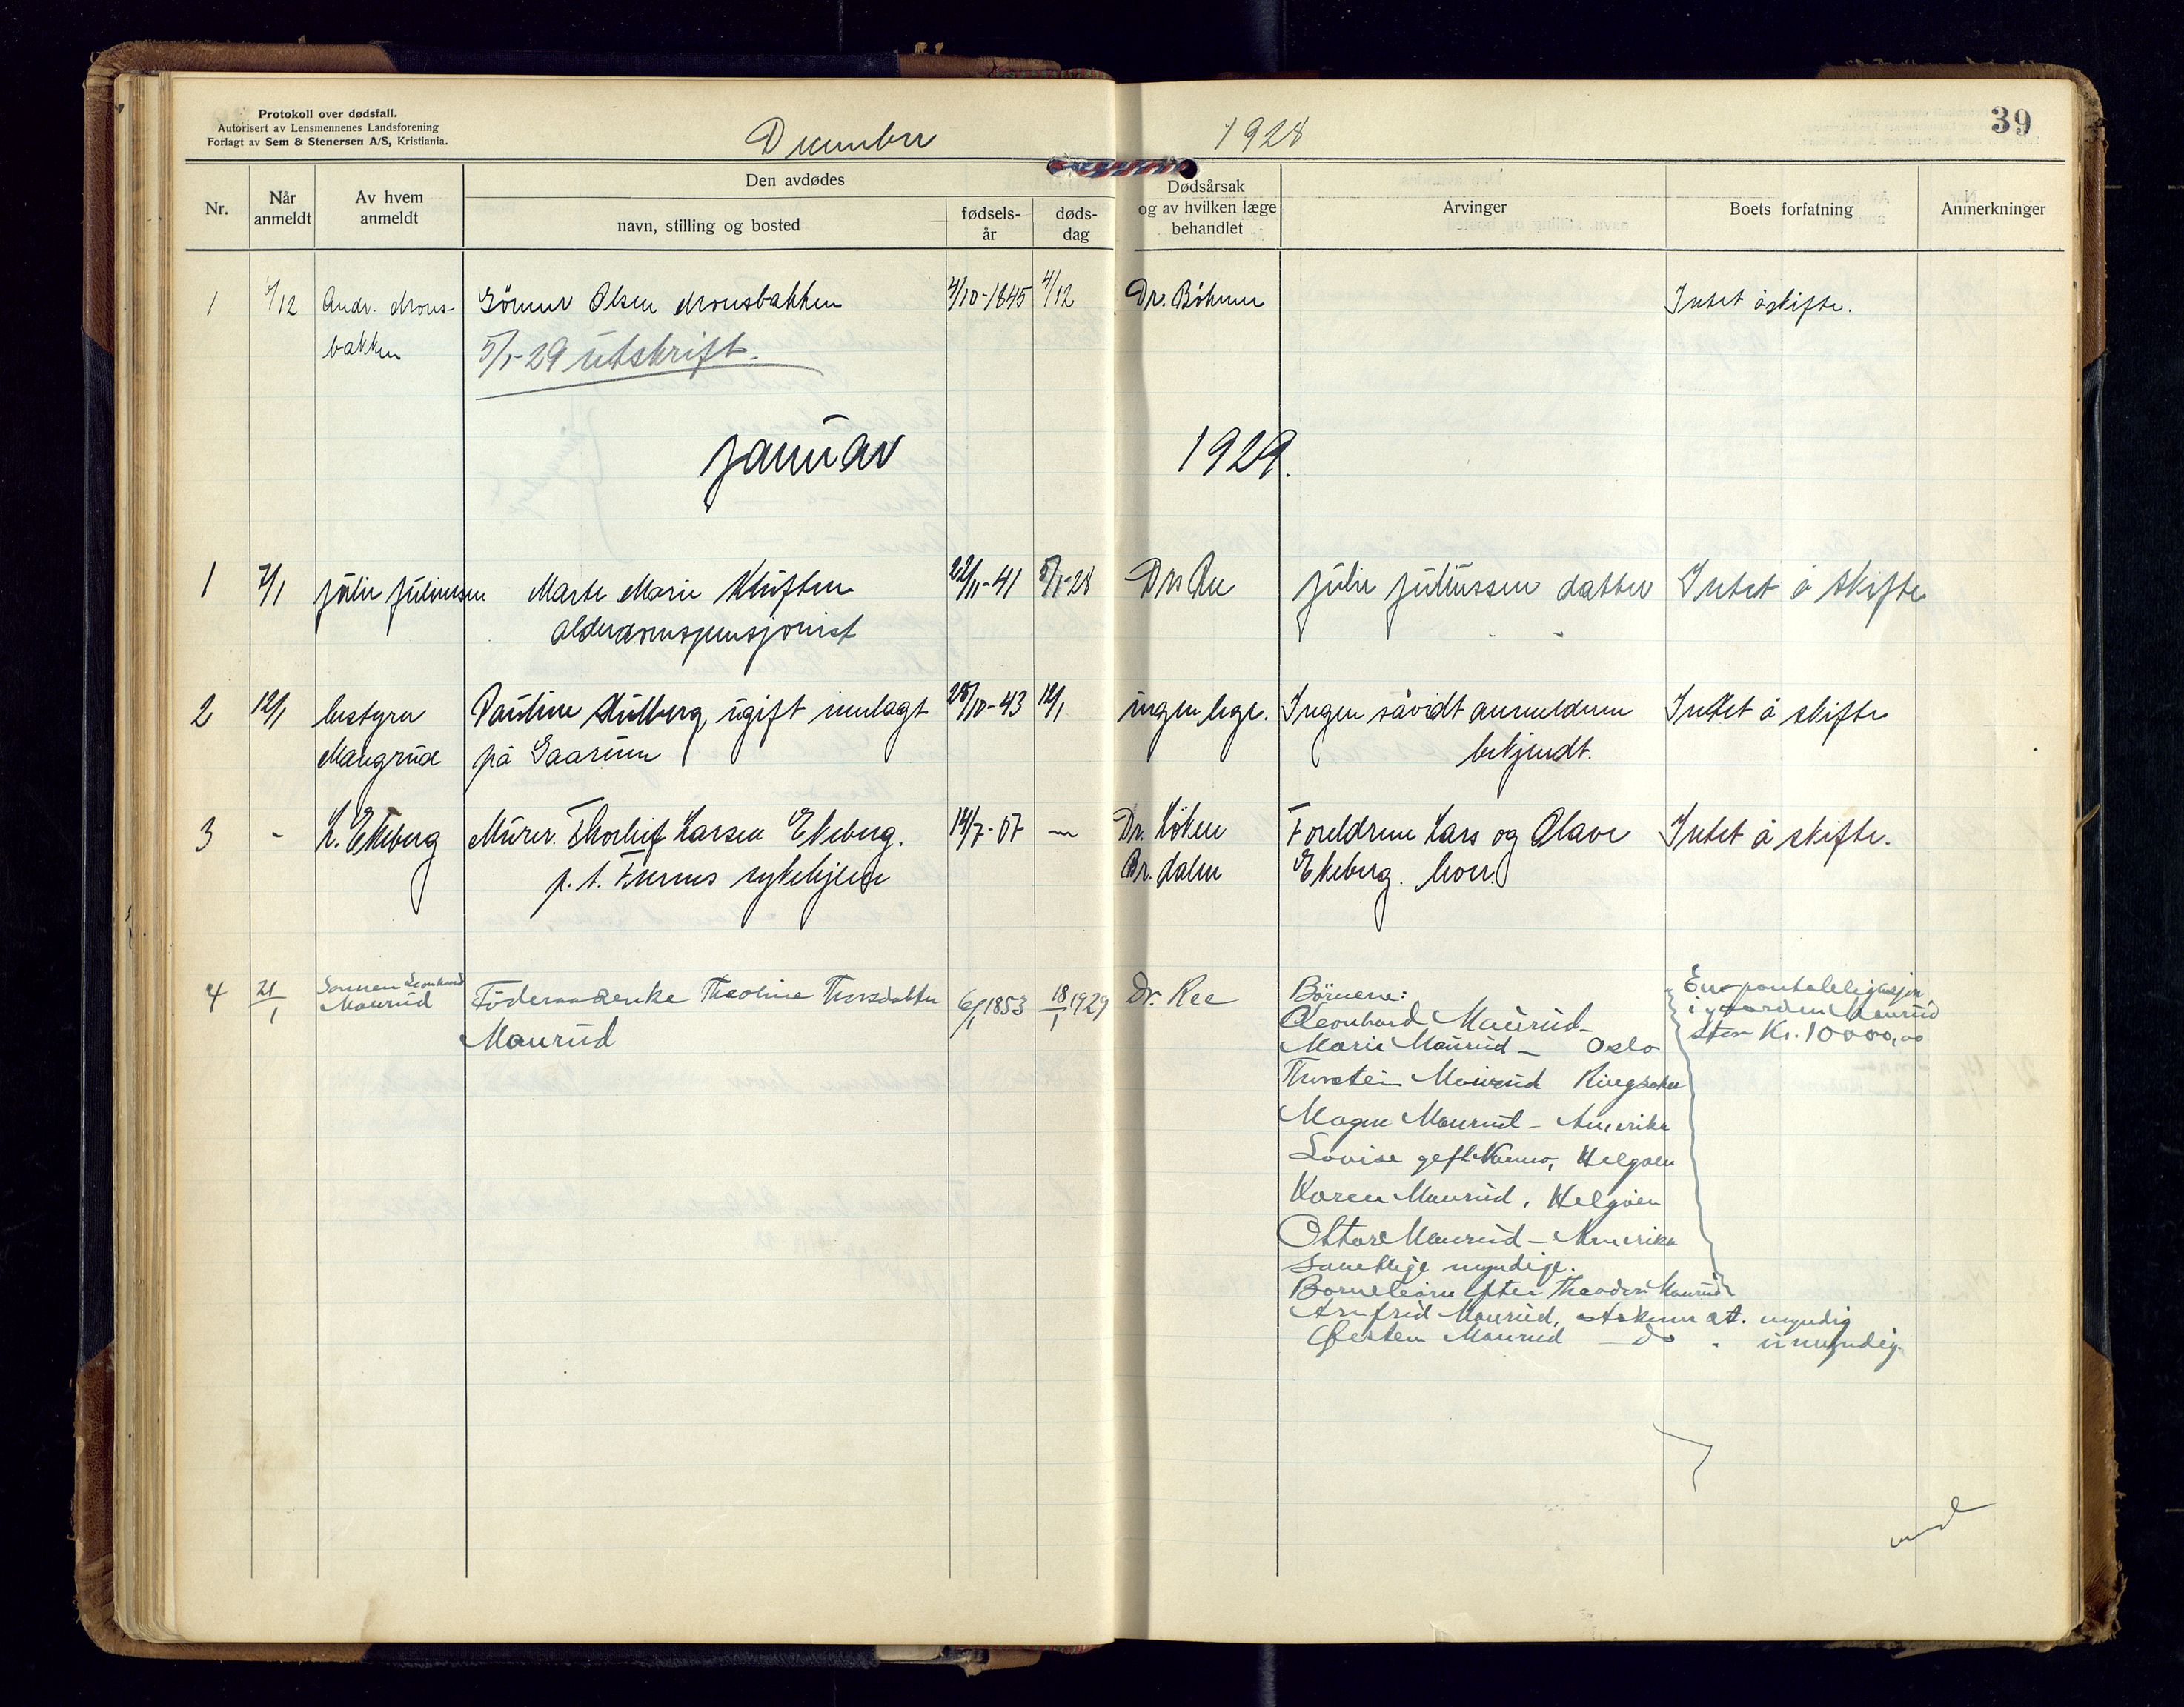 Protokoll over dødsfall.
Autorisert av Lensmennenes Landsforening
Forlagt av Sem & Stenersen A/S, Kristiania.
December 1928
39
Nr.
Når anmeldt
Av hvem anmeldt
Den avdødes
navn, stilling og bosted
fødsels-år
døds-dag
Dødsårsak og av hvilken læge behandlet
Arvinger
Boets forfatning
Anmerkninger
1 /12 Andr. Mons- Olsen Monsbakken 4/10-1845 4/12 Dr. Böhmer Intet å skifte.
bakken 5/1-29 utskrift.
Januar 1929.
1 7/1 Julie Juliussen Marte Marie Kluften 22/11-41 5/1-28 Dr. Ree Julie Juliussen datter Intet å skifte
alderdomspensjonist
2 12/1 bestyrer Pauline Hulberg, ugift innlagt 28/10-43 12/1 ingen lege. Ingen såvidt anmelderen Intet å skifte
Mangrud på Gaarum bekjendt.
3 - L. Ekeberg Murer. Thorleif Larsen Ekeberg. 14/7-07 - Dr. Löken Foreldrene Lars og Olave Intet å skifte.
p. t. Furnes sykehjem Dr. Dalen Ekeberg. her.
4 21/1 Sønnen Leonhard Föderaadsenke Theoline Thorsdatter 6/1 1853 18/1 1929 Dr. Ree Börnene: En pantobligasjon
Maurud Maurud Leonhard Maurud i gaarden Maurud
Marie Maurud - Oslo stor Kr. 10000,00
Thorstein Maurud Ringsaker
Magne Maurud - Amerika
Lovise gift, Helgöen
Karen Maurud, Helgöen
Ottar Maurud - Amerika
Samtlige myndige.
Barnebarn efter Theodor Maurud
Arnfrid Maurud, myndig
Öistein Maurud - do. umyndig